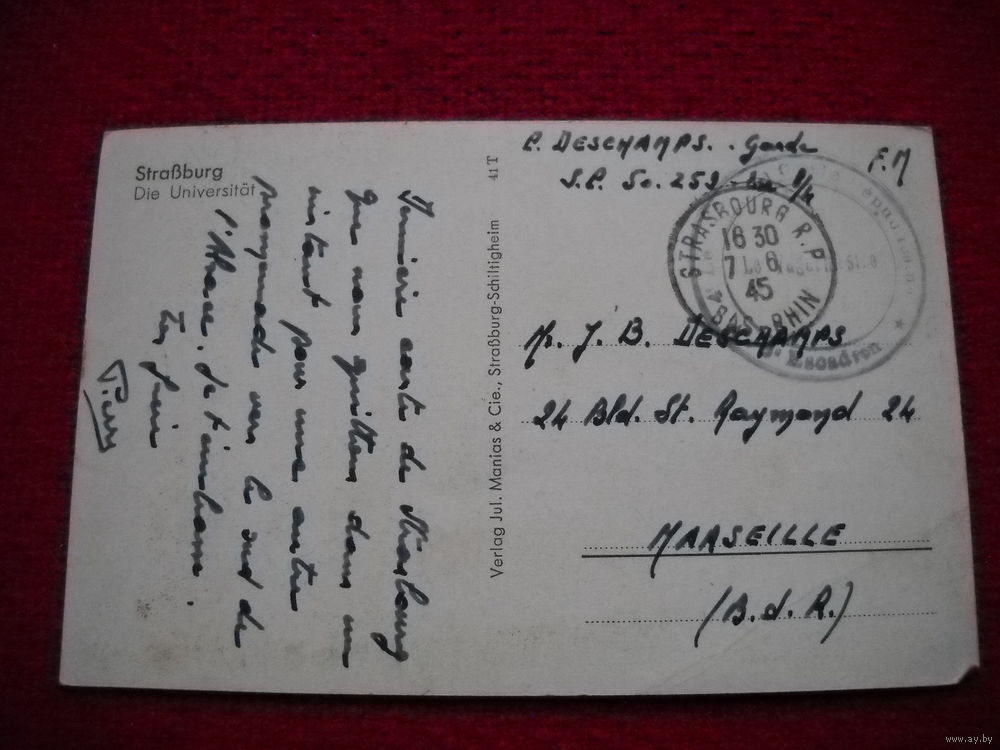 Straßburg
Die Universität
Dernière carte de Strasbourg
que nous quittons dans un
instant pour une autre
promenade vers le sud de
l'Alsace. Je t'embrasse.
Ton
Pierre
Verlag Jul. Manias & Cie., Straßburg-Schiltigheim
41 T
P. DESCHAMPS. Garde
S.P. 50.259
F.M
STRASBOURG R.P
16 30
7 6
45
BAS-RHIN
Escadron
M. J. B. DESCHAMPS
24 Bld. St. Raymond 24
MARSEILLE
(B.d.R.)
www.ay.by